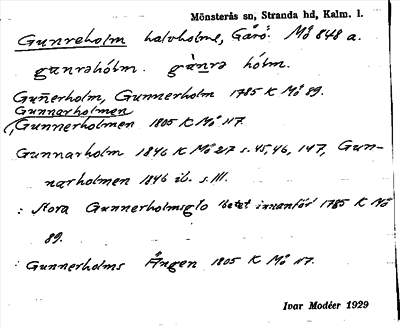 Mönsterås sn, Stranda hd, Kalm. l.
Gunreholm halvholme, Gårö: Må 848 a.
gunrəhólm. gùnrə hólm.
Guñerholm, Gunnerholm 1785 K Må 89.
Gunnarholmen
(, Gunnerholmen 1805 K Må 117.
Gunnarholm 1846 K Må 217 s. 45, 46, 147, Gun-
narholmen 1846 ib. s. 111.
: Stora Gunnerholmsglo betet innanför 1785 K Må
89.
: Gunnerholms Ängen 1805 K Må 117.
Ivar Modéer 1929